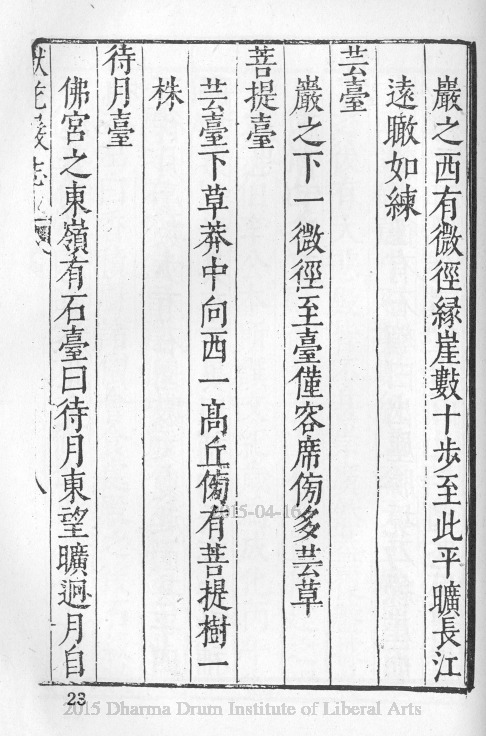 巖之西有微徑緣崖數十步至此平曠長江
遠瞰如練
芸臺
巖之下一微徑至臺僅容席傍多芸草
菩提臺
芸臺下草莽中向西一高丘傍有菩提樹一
株
待月臺
佛宮之東嶺有石臺曰待月東望曠迥月自
23
2015-04-16
2015 Dharma Drum Institute of Liberal Arts